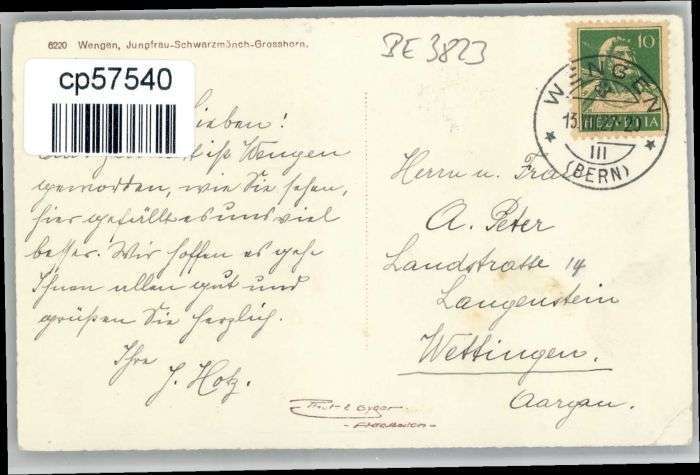 6220 Wengen, Jungfrau-Schwarzmönch-Grosshorn.
BE 3823
cp57540
10
HELVETIA
WENGEN
13.
III
(BERN)
Lieben!
ist Wengen
geworden, wie Sie sehen,
hier gefällt es uns viel
besser. Wir hoffen es gehe
Ihnen allen gut und
grüßen Sie herzlich.
Ihre
J. Hotz.
Herrn u. Frau
A. Peter
Landstrasse 14
Langenstein
Wettingen.
Aargau.